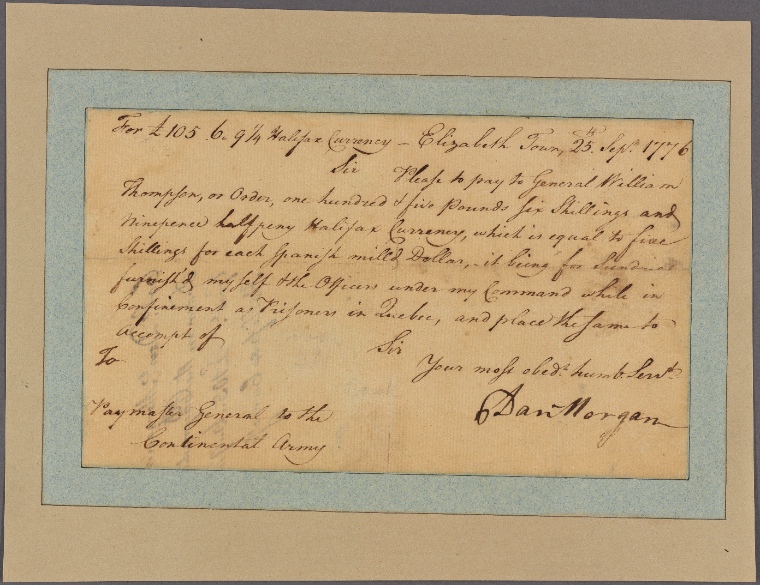 For £ 105 . 6. 9 1/4 Halifax Currency – Elizabeth Town, 25th Sepr. 1776
Sir Please to pay to General William
Thompson, or Order, one hundred & five Pounds six Shillings and
Ninepence halfpeny Halifax Currency, which is equal to five
Shillings for each Spanish mill'd Dollar, it being for Sundries
furnish'd myself & the Officers under my Command while in
Confinement as Prisoners in Quebec, and place the same to
Accompt of
Sir
To
Your most obedt. humb. Servt.
Danl Morgan
Paymaster General to the
Continental Army